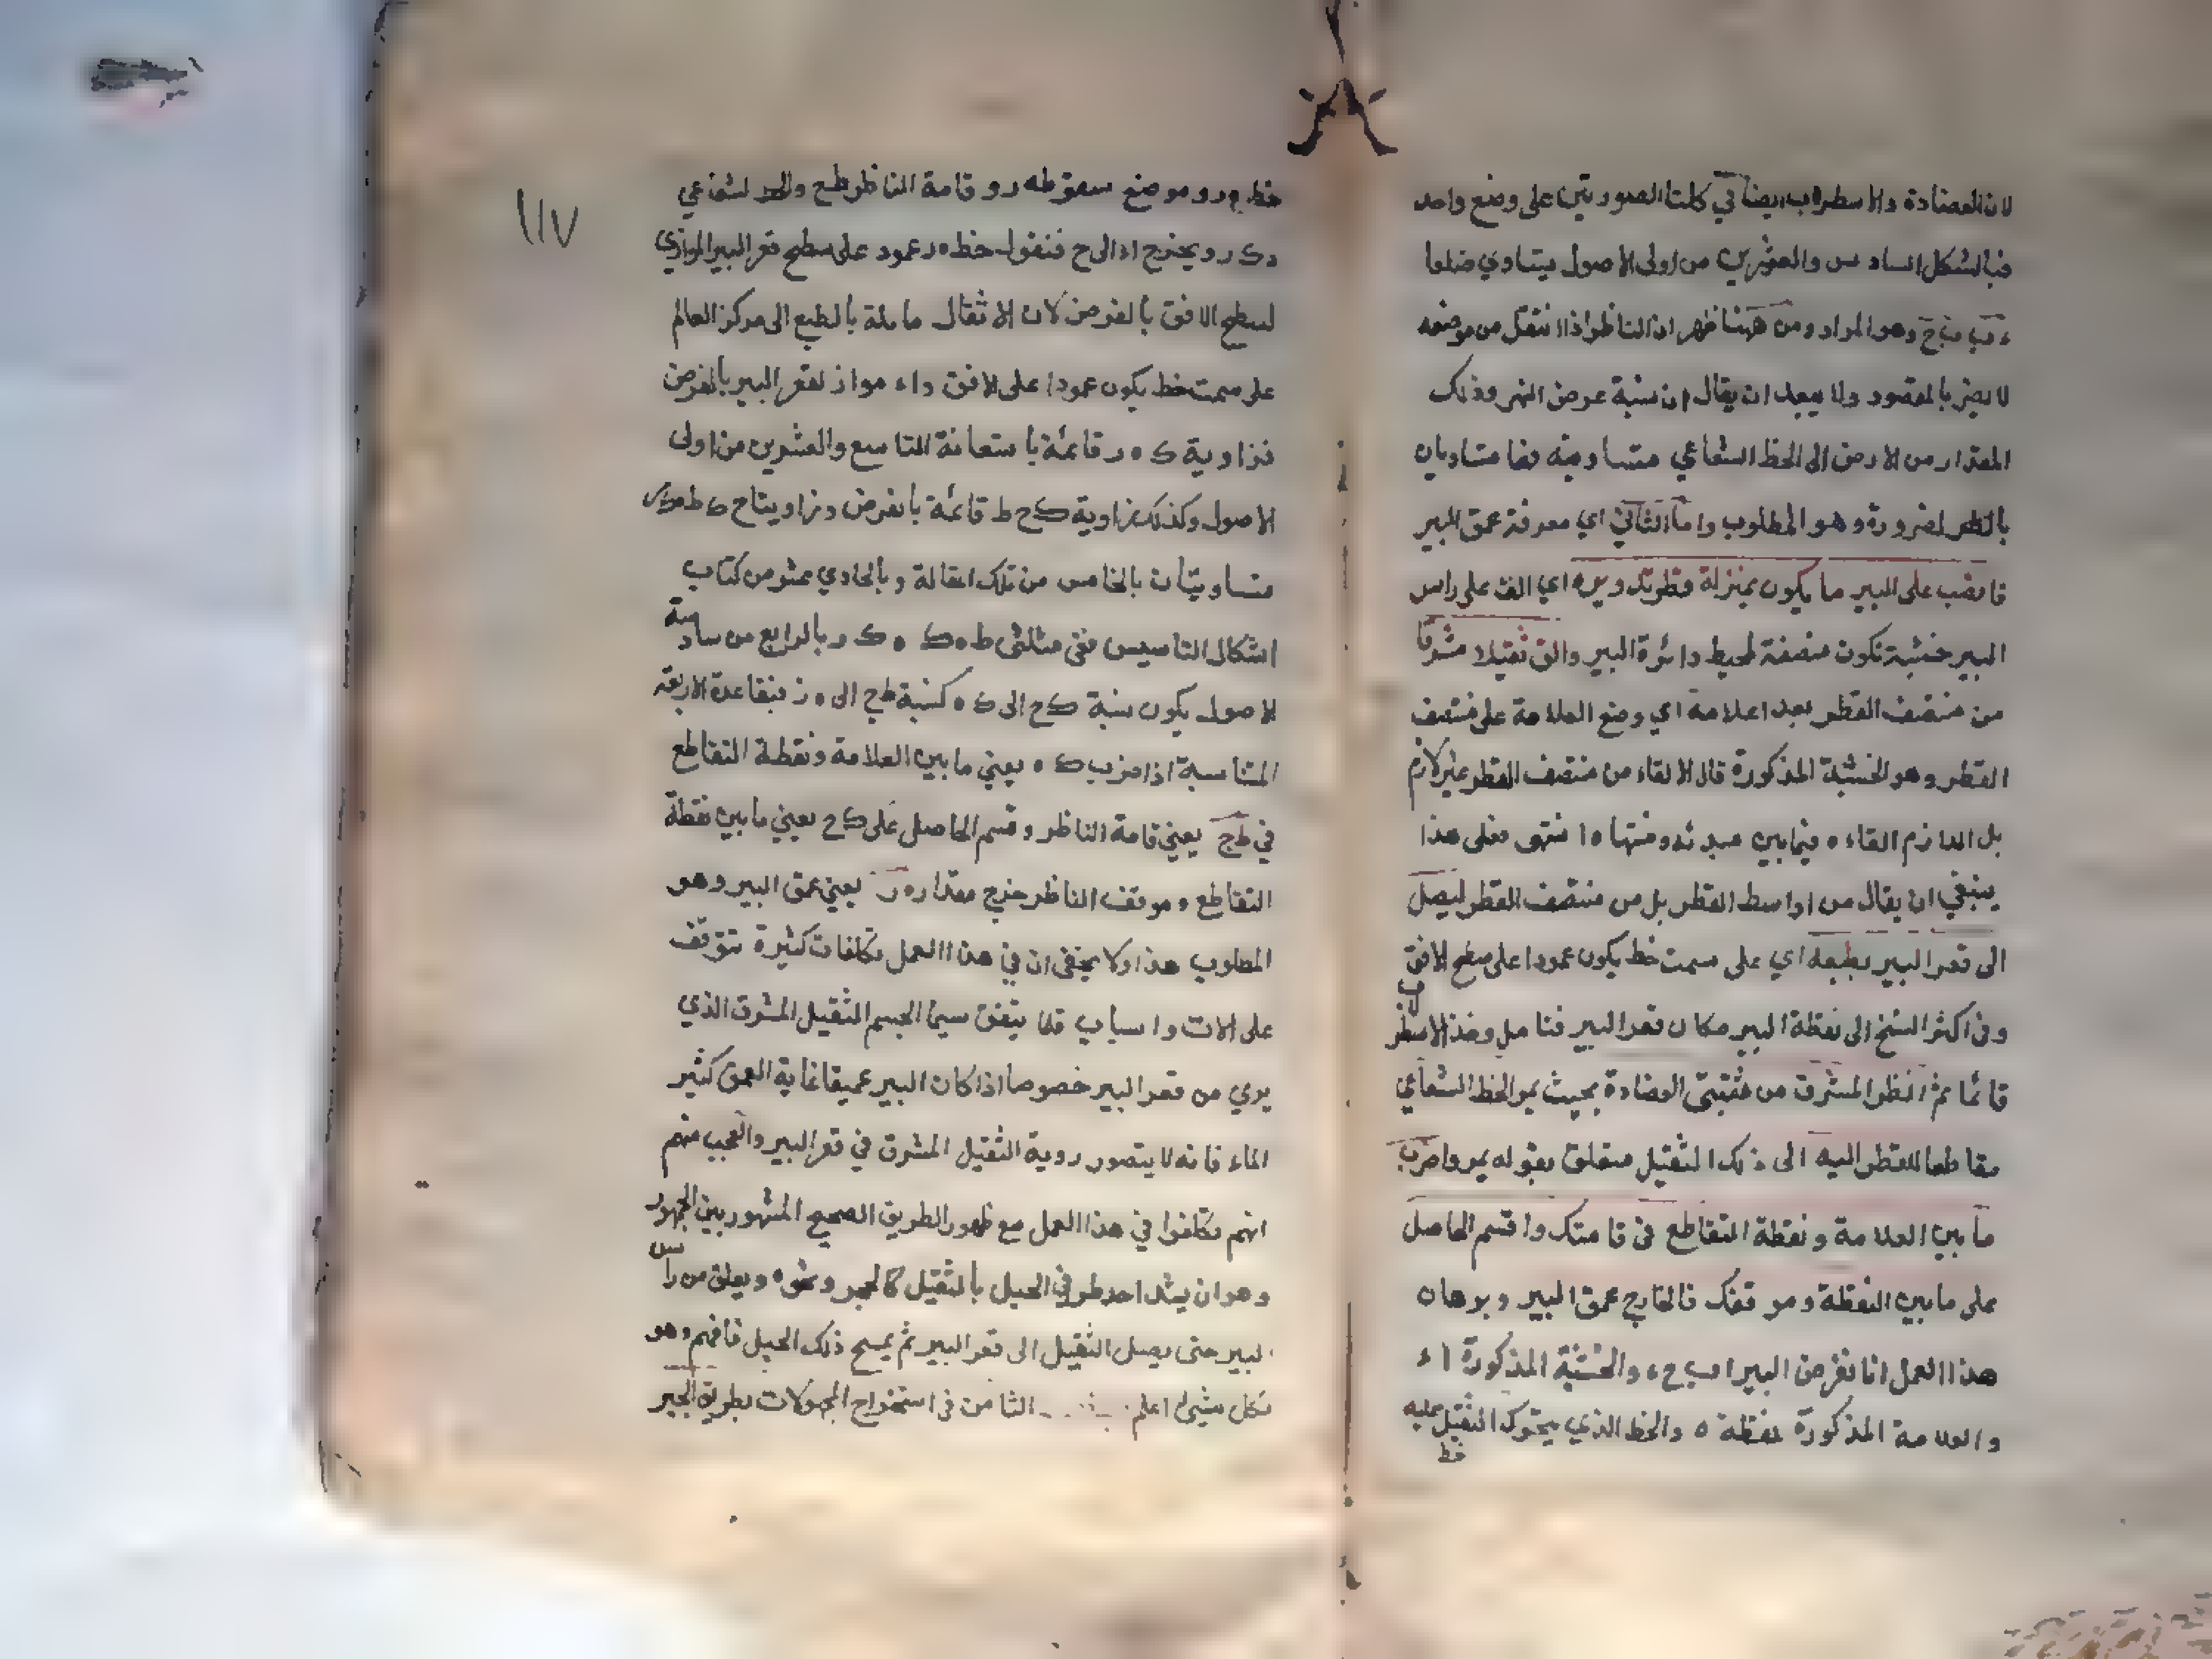 لان العضادة والاسطرلاب ايضا في كلتا الصورتين على وضع واحد
فبالشكل السادس والعشرين من اولى الاصول يتساوي ضلعا
وهو المراد ومن ههنا ظهر ان الناظر اذا انتقل من موضعه
لا يضر بالمقصود ولا يبعد ان يقال ان نسبة عرض النهر وذلك
المقدار من الارض الى الخط الشعاعي متساوية فها متساويان
بالضرورة وهو المطلوب واما الثاني اي معرفة عمق البير
فانصب على البير ما يكون بمنزلة قطر تدويره اي الق على راس
البير خشبة تكون منصفة لمحيط دائرة البير والق ثقيلا مشرقا
من منتصف القطر بعد اعلامه اي وضع العلامة على منتصف
القطر وهو الخشبة المذكورة قال الالقاء من منتصف القطر غير لازم
بل اللازم القاءه فيما بين مبدئه ومنتهاه انتهى فعلى هذا
ينبغي ان يقال من اواسط القطر بل من منتصف القطر ليصل
الى قعر البير بطبعه اي على سمت خط يكون عمودا على سطح الافق
وفي اكثر النسخ الى نقطة البير مكان قعر البير فتامل وخذ الاسطرلاب
قائما ثم انظر المشرق من ثقبتي العضادة بحيث يمر الخط الشعاعي
مقاطعا للقطر اليه الى ذلك الثقيل متعلق بقوله يمر واضرب
ما بين العلامة ونقطة التقاطع في قامتك واقسم الحاصل
على ما بين النقطة وموقفك فالخارج عمق البير وبرهان
هذا العمل انا نفرض البير ا ب ج ء والخشبة المذكورة ا ء
والعلامة المذكورة نقطة ه والخط الذي يتحرك الثقيل عليه
خط
خط ه ر وموضع سقوطه ر وقامة الناظر ط ح والخط الشعاعي
ط ك ر ويخرج ا ء الى ح فنقول خط ه ر عمود على سطح قعر البير الموازي
لسطح الافق بالفرض لان الاثقال مائلة بالطبع الى مركز العالم
على سمت خط يكون عمودا على الافق و ا ء مواز لقعر البير بالفرض
فزاوية ك ه ر قائمة باستعانة التاسع والعشرين من اولى
الاصول وكذلك زاوية ك ح ط قائمة بالفرض وزاويتا ح ك ط ه ك ر
متساويتان بالخامس من تلك المقالة وبالحادي عشر من كتاب
اشكال التاسيس ففي مثلثي ط ح ك ه ك ر وبالرابع من سادسة
الاصول يكون نسبة ك ح الى ك ه كنسبة ط ح الى ه ر فبقاعدة الاربعة
المتناسبة اذا ضرب ك ه يعني ما بين العلامة ونقطة التقاطع
في ط ح يعني قامة الناظر وقسم الحاصل على ك ح يعني ما بين نقطة
التقاطع وموقف الناظر خرج مقدار ه ر يعني عمق البير وهو
المطلوب هذا ولا يخفى ان في هذا العمل تكلفات كثيرة تتوقف
على الات واسباب قلما يتفق سيما الجسم الثقيل المشرق الذي
يرى من قعر البير خصوصا اذا كان البير عميقا غاية العمق كثير
الماء فانه لا يتصور روية الثقيل المشرق في قعر البير والعجب منهم
انهم تكلفوا في هذا العمل مع ظهور الطريق الصحيح المشهور بين الجمهور
وهو ان يشد احد طرفي الحبل بالثقيل كالحجر ونحوه ويعلق من راس
البير حتى يصل الثقيل الى قعر البير ثم يمسح ذلك الحبل فافهم وهو
بكل شيئ اعلم الثامن في استخراج المجهولات بطريق الجبر
١١٧